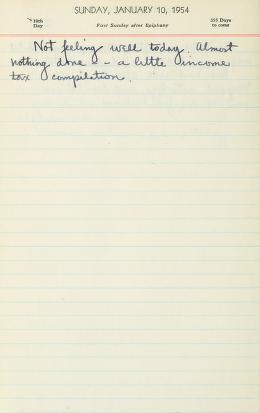 SUNDAY, JANUARY 10, 1954
10th Day
First Sunday after Epiphany
355 Days to come
Not feeling well today. Almost
nothing done - - a little income
tax compilation.